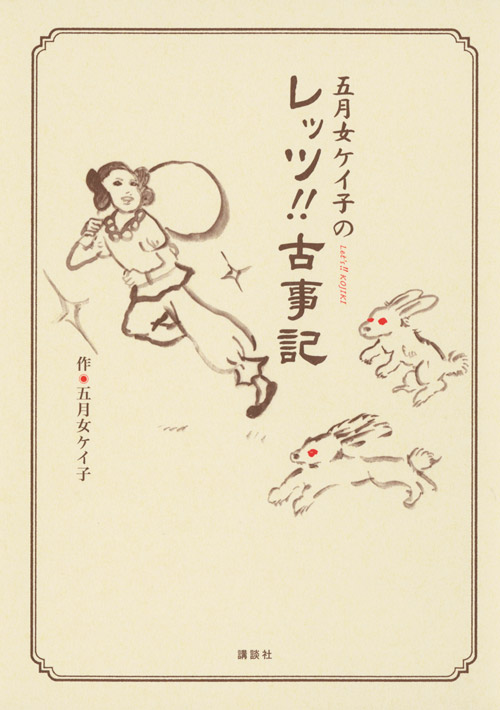 五月女ケイ子の
レッツ!! 古事記
Let's!! KOJIKI
作・五月女ケイ子
講談社